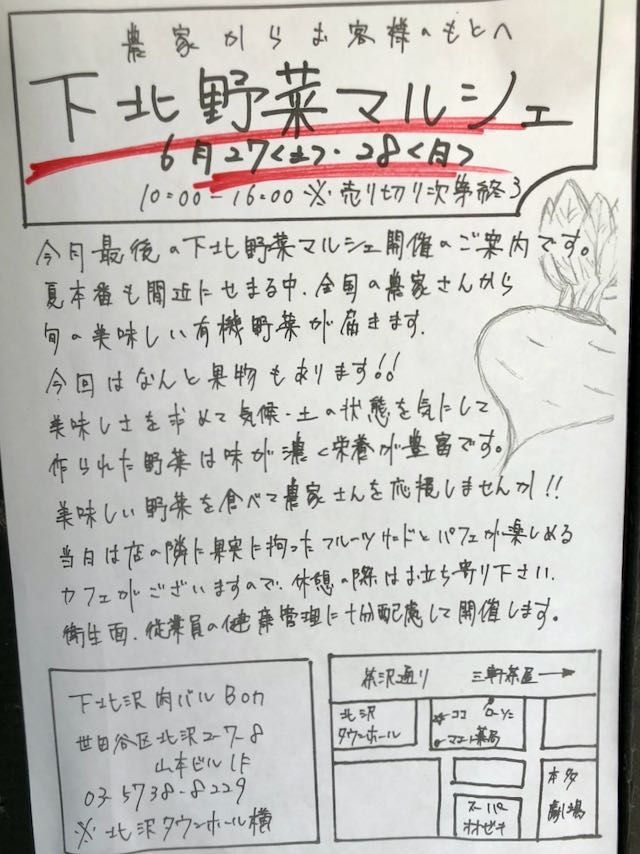 農家からお客様のもとへ
下北野菜マルシェ
6月27<土>・28<日>
10:00-16:00 ※売り切り次第終了
今月最後の下北野菜マルシェ開催のご案内です。
夏本番も間近にせまる中、全国の農家さんから
旬の美味しい有機野菜が届きます。
今回はなんと果物もあります!!
美味しさを求めて気候・土の状態を気にして
作られた野菜は味が濃く栄養が豊富です。
美味しい野菜を食べて農家さんを応援しませんか!!
当日は店の隣に果実に拘ったフルーツサンドとパフェが楽しめる
カフェがございますので、休憩の際はお立ち寄り下さい。
衛生面、従業員の健康管理に十分配慮して開催します。
下北沢 肉バル Bon
世田谷区北沢2-7-8
山本ビル1F
03-5738-8229
※北沢タウンホール横
茶沢通り 三軒茶屋→
北沢
タウンホール
★ココ ローソン
薬局
スーパー
オオゼキ
本多
劇場